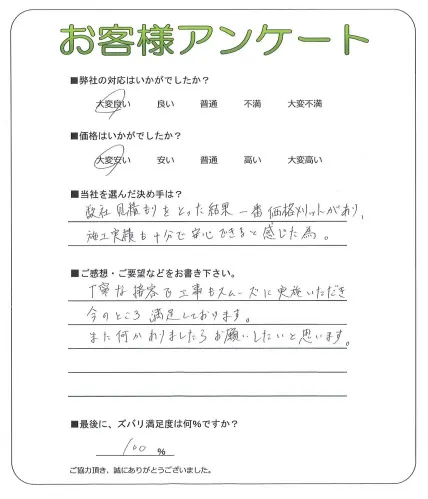 お客様アンケート
■弊社の対応はいかがでしたか？
大変良い 良い 普通 不満 大変不満
■価格はいかがでしたか？
大変安い 安い 普通 高い 大変高い
■当社を選んだ決め手は？
数社見積もりをとった結果 一番価格メリットがあり、
施工実績も十分で安心できると感じた為。
■ご感想・ご要望などをお書き下さい。
丁寧な接客で工事もスムーズに実施いただき
今のところ満足しております。
また何かありましたらお願いしたいと思います。
■最後に、ズバリ満足度は何％ですか？
100 ％
ご協力頂き、誠にありがとうございました。